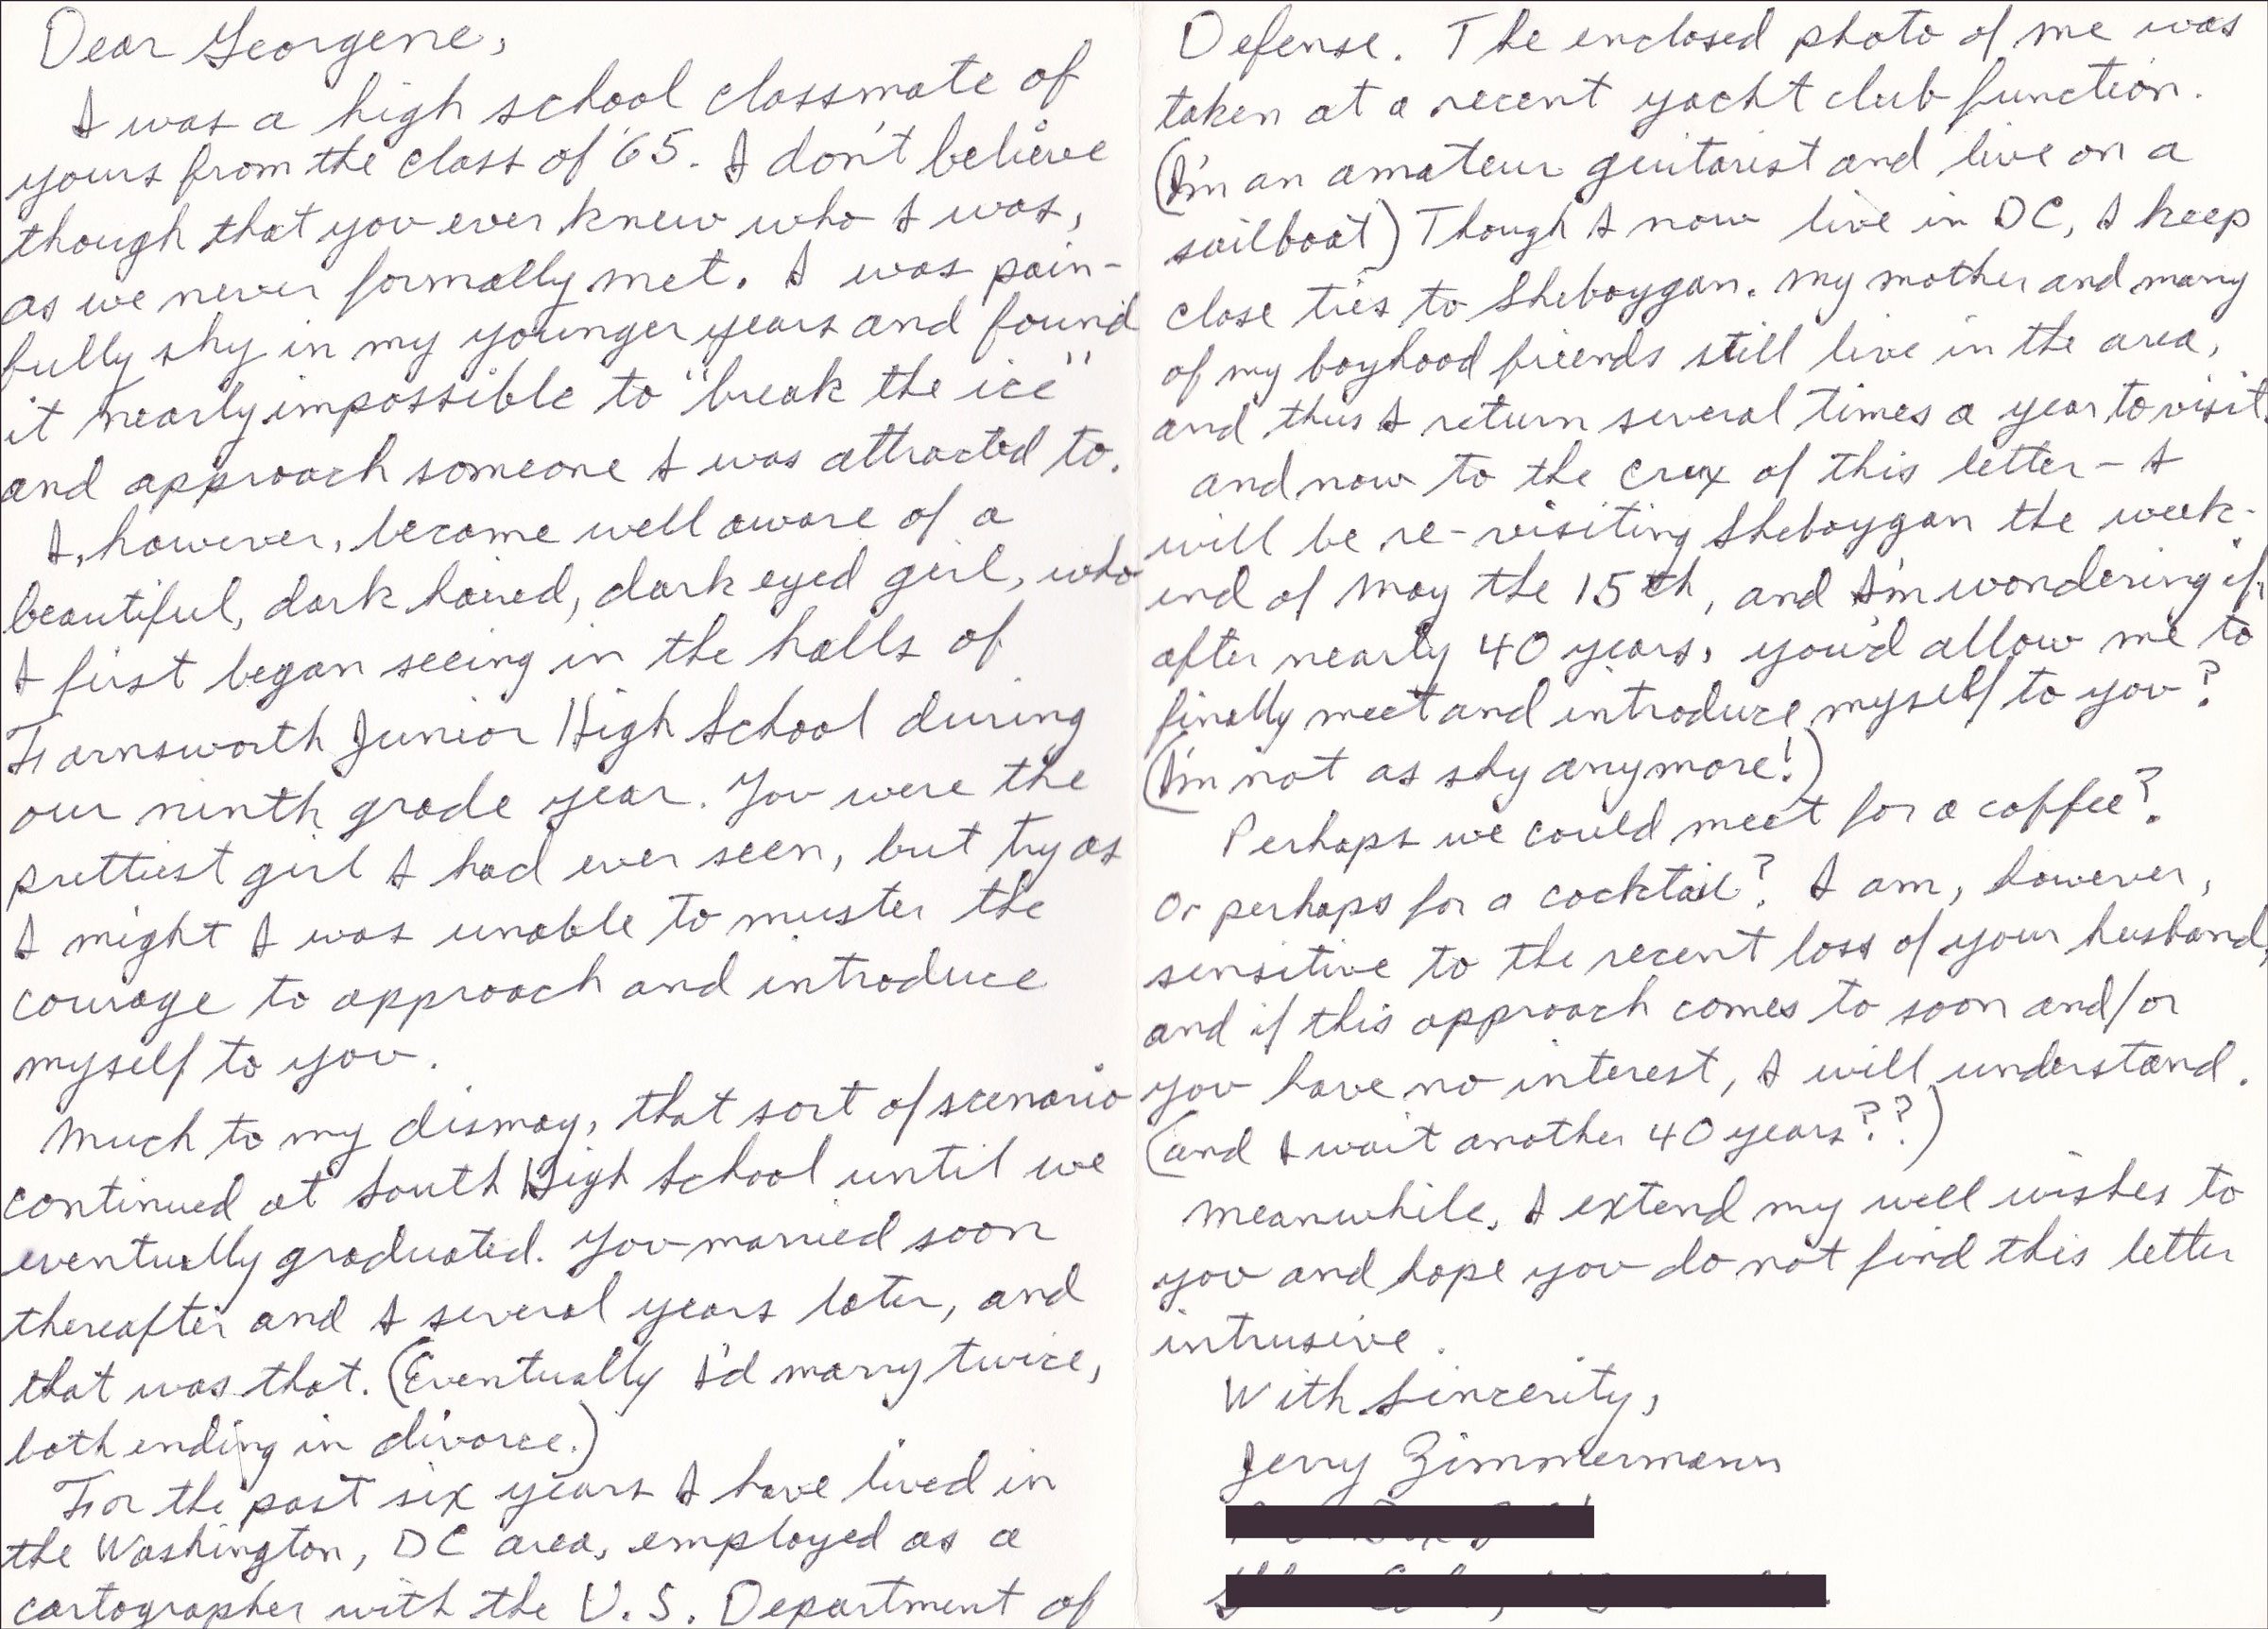 Dear Georgene,
I was a high school classmate of
yours from the class of '65. I don't believe
though that you ever knew who I was,
as we never formally met. I was pain-
fully shy in my younger years and found
it nearly impossible to "break the ice"
and approach someone I was attracted to.
I, however, became well aware of a
beautiful, dark haired, dark eyed girl, who
I first began seeing in the halls of
Farnsworth Junior High School during
our ninth grade year. You were the
prettiest girl I had ever seen, but try as
I might I was unable to muster the
courage to approach and introduce
myself to you.
Much to my dismay, that sort of scenario
continued at South High School until we
eventually graduated. You married soon
thereafter and I several years later, and
that was that. (Eventually I'd marry twice,
both ending in divorce.)
For the past six years I have lived in
the Washington, DC area, employed as a
cartographer with the U.S. Department of
Defense. The enclosed photo of me was
taken at a recent yacht club function.
(I'm an amateur guitarist and live on a
sailboat) Though I now live in DC, I keep
close ties to Sheboygan. My mother and many
of my boyhood friends still live in the area,
and thus I return several times a year to visit.
And now to the crux of this letter - I
will be re-visiting Sheboygan the week-
end of May the 15th, and I'm wondering if,
after nearly 40 years, you'd allow me to
finally meet and introduce myself to you?
(I'm not as shy anymore!)
Perhaps we could meet for a coffee?
Or perhaps for a cocktail? I am, however,
sensitive to the recent loss of your husband,
and if this approach comes to soon and/or
you have no interest, I will understand.
(and I wait another 40 years??)
Meanwhile, I extend my well wishes to
you and hope you do not find this letter
intrusive.
With Sincerity,
Jerry Zimmermann